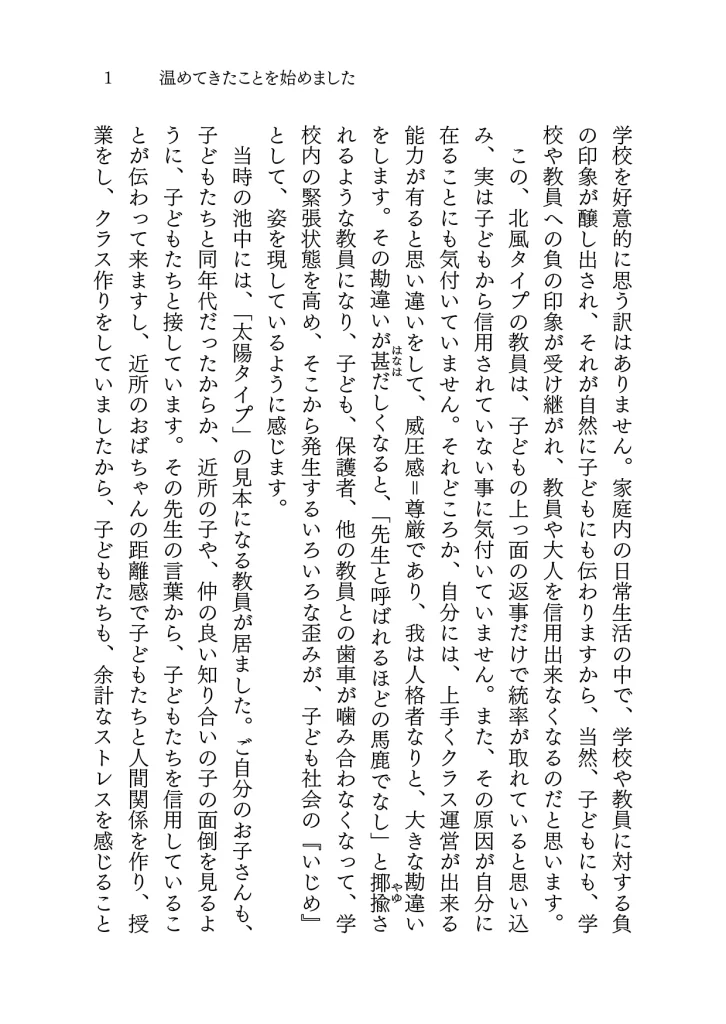 1 温めてきたことを始めました
学校を好意的に思う訳はありません。家庭内の日常生活の中で、学校や教員に対する負
の印象が醸し出され、それが自然に子どもにも伝わりますから、当然、子どもにも、学
校や教員への負の印象が受け継がれ、教員や大人を信用出来なくなるのだと思います。
この、北風タイプの教員は、子どもの上っ面の返事だけで統率が取れていると思い込
み、実は子どもから信用されていない事に気付いていません。また、その原因が自分に
在ることにも気付いていません。それどころか、自分には、上手くクラス運営が出来る
能力が有ると思い違いをして、威圧感＝尊厳であり、我は人格者なりと、大きな勘違い
をします。その勘違いが甚だしくなると、「先生と呼ばれるほどの馬鹿でなし」と揶揄さ
れるような教員になり、子ども、保護者、他の教員との歯車が噛み合わなくなって、学
校内の緊張状態を高め、そこから発生するいろいろな歪みが、子ども社会の『いじめ』
として、姿を現しているように感じます。
当時の池中には、「太陽タイプ」の見本になる教員が居ました。ご自分のお子さんも、
子どもたちと同年代だったからか、近所の子や、仲の良い知り合いの子の面倒を見るよ
うに、子どもたちと接しています。その先生の言葉から、子どもたちを信用しているこ
とが伝わって来ますし、近所のおばちゃんの距離感で子どもたちと人間関係を作り、授
業をし、クラス作りをしていましたから、子どもたちも、余計なストレスを感じること